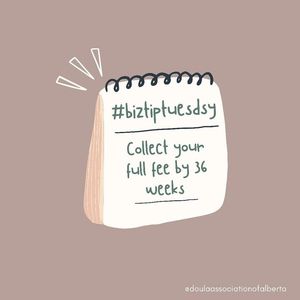 #biztiptuesdsy
Collect your
full fee by 36
weeks
@doulaassociationofalberta